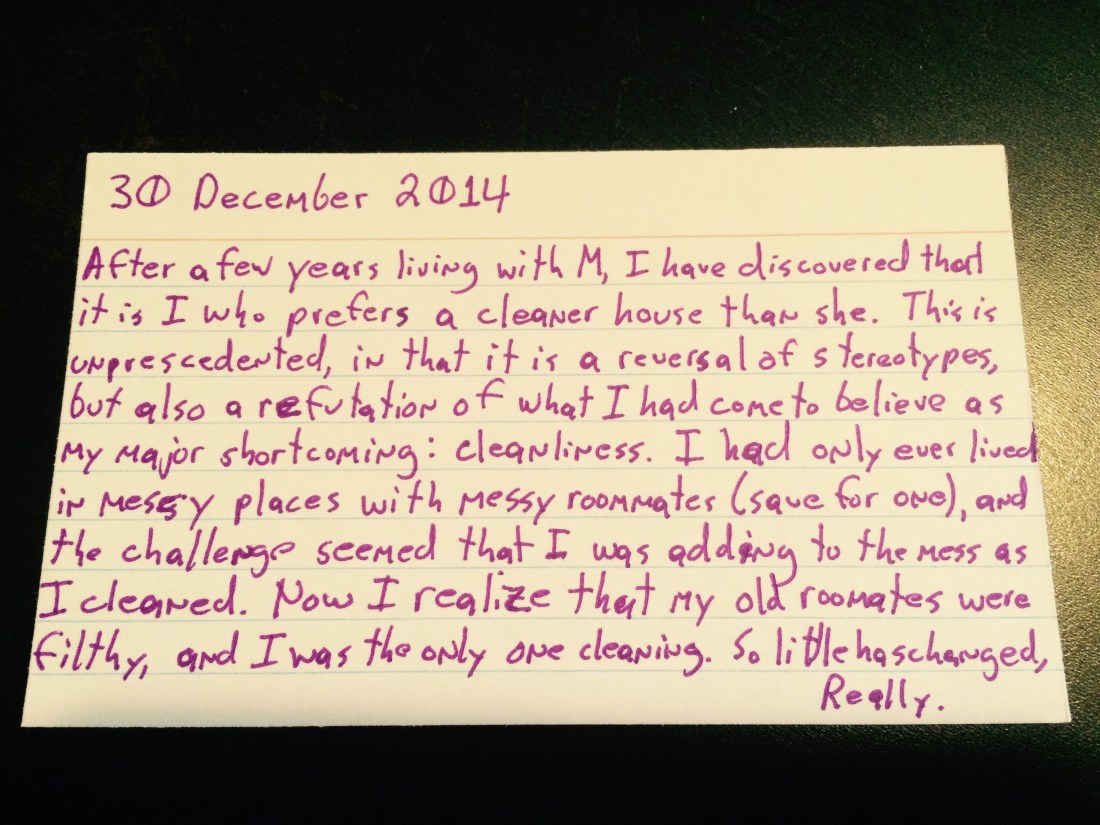 30 December 2014
After a few years living with M, I have discovered that
it is I who prefers a cleaner house than she. This is
unprescedented, in that it is a reversal of stereotypes,
but also a refutation of what I had come to believe as
my major shortcoming: cleanliness. I had only ever lived
in messy places with messy roommates (save for one), and
the challenge seemed that I was adding to the mess as
I cleaned. Now I realize that my old roomates were
filthy, and I was the only one cleaning. So little has changed,
Really.